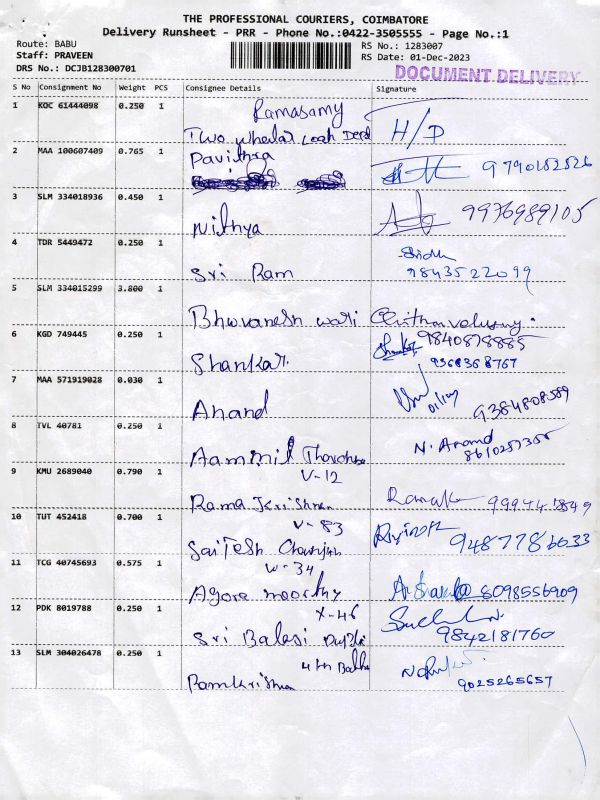 THE PROFESSIONAL COURIERS, COIMBATORE
Delivery Runsheet - PRR - Phone No.:0422-3505555 - Page No.:1
Route: BABU
Staff: PRAVEEN
DRS No.: DCJB128300701
RS No.: 1283007
RS Date: 01-Dec-2023
DOCUMENT DELIVERY
S No Consignment No Weight PCS Consignee Details Signature
1 KOC 61444098 0.250 1 Ramasamy
Two Wheeler Loan H/D
2 MAA 100607409 0.765 1 Pavithra 9790182526
3 SLM 334018936 0.450 1
Nithya 9976989105
4 TDR 5449472 0.250 1
Sri Ram 9843522099
5 SLM 334015299 3.800 1
Bhuvanesh wari
6 KGD 749445 0.250 1 9840878885
Shankar 9368368767
7 MAA 571919028 0.030 1
Anand 9384808589
8 TVL 40781 0.250 1 N. Anand
8610257355
V-12
9 KMU 2689040 0.790 1
Rama Krishnan
V-83
10 TUT 452418 0.700 1 9487786033
W-34
11 TCG 40745693 0.575 1
Agore moorthy 8098556909
X-46
12 PDK 8019788 0.250 1
Sri Balaji 9842181760
13 SLM 304026478 0.250 1 4th
Ramkrishnan 9025265657